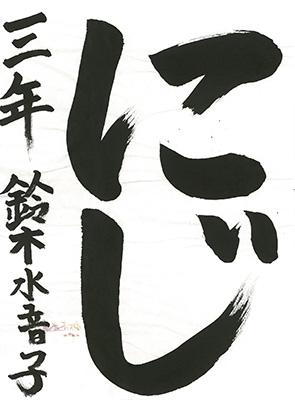 にじ
三年 鈴木水音子